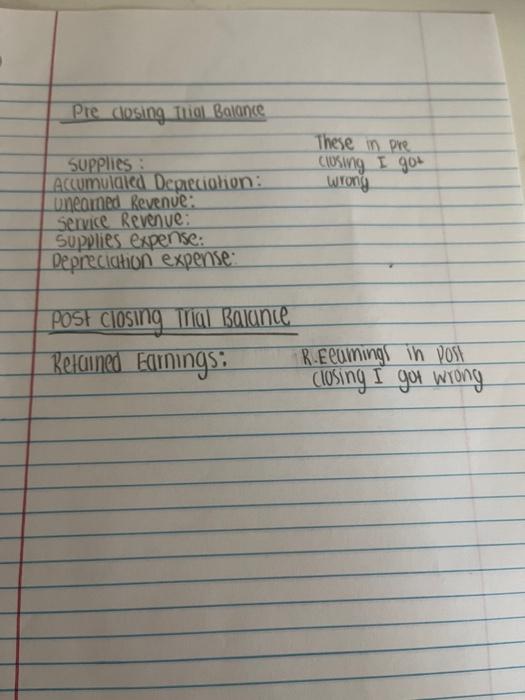 Pre closing Trial Balance
These in pre
closing I got
wrong
Supplies :
Accumulated Depreciation:
unearned Revenue:
Service Revenue:
Supplies expense:
Depreciation expense:
Post closing Trial Balance
Retained Earnings:
R.Eearnings in Post
closing I got wrong